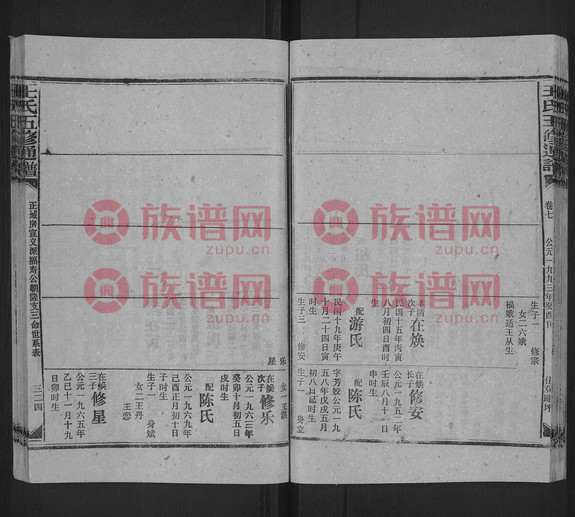 王氏五修通谱
卷七
公元一九九三年癸酉
生子一 修宗
女二六娥
福娥适王从生
本清次子 在焕
民国十五年丙寅
八月初四日酉时
生
配 游氏
民国十九年庚午
十月二十四日寅
时生
生子三 修安
修乐
修星
在焕长子 修安
公元一九五二年
壬辰八月十一日
申时生
配 陈氏
字芳姣公元一九
五八年戊戌五月
初八日时生
生子一 身立
女一
在焕次子 修乐
公元一九六三年
癸卯十月初五日
戌时生
配 陈氏
公元一九六九年
己酉正月初十日
子时生
生子一 身斌
女二王丹
王恋
在焕三子 修星
公元一九六五年
乙巳十一月十九
日卯时生
王氏五修通谱
正域房宣义派福寿公朝隆支三命世系表
三二四
族谱网
zupu.cn